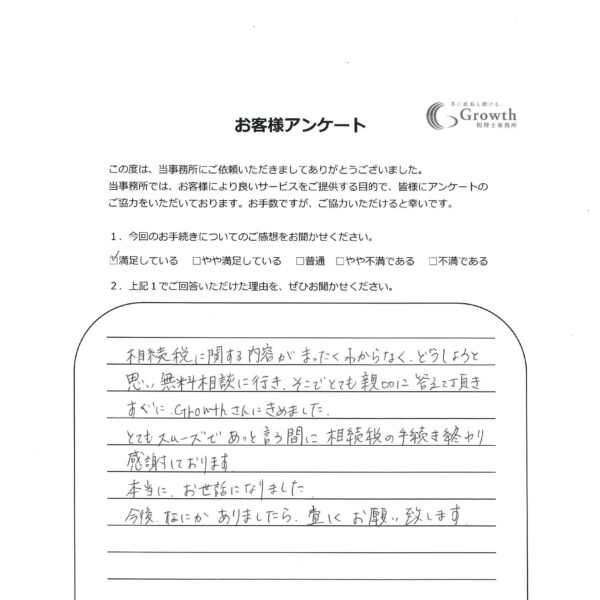 共に成長し続ける。
Growth
税理士事務所
お客様アンケート
この度は、当事務所にご依頼いただきましてありがとうございました。
当事務所では、お客様により良いサービスをご提供する目的で、皆様にアンケートの
ご協力をいただいております。お手数ですが、ご協力いただけると幸いです。
１．今回のお手続きについてのご感想をお聞かせください。
☑満足している □やや満足している □普通 □やや不満である □不満である
２．上記１でご回答いただけた理由を、ぜひお聞かせください。
相続税に関する内容がまったくわからなく、どうしようと
思い無料相談に行き、そこでとても親切に答えて頂き
すぐに、Growthさんにきめました。
とてもスムーズであっと言う間に相続税の手続き終わり
感謝しております
本当に、お世話になりました。
今後、なにかありましたら、宜しくお願い致します。